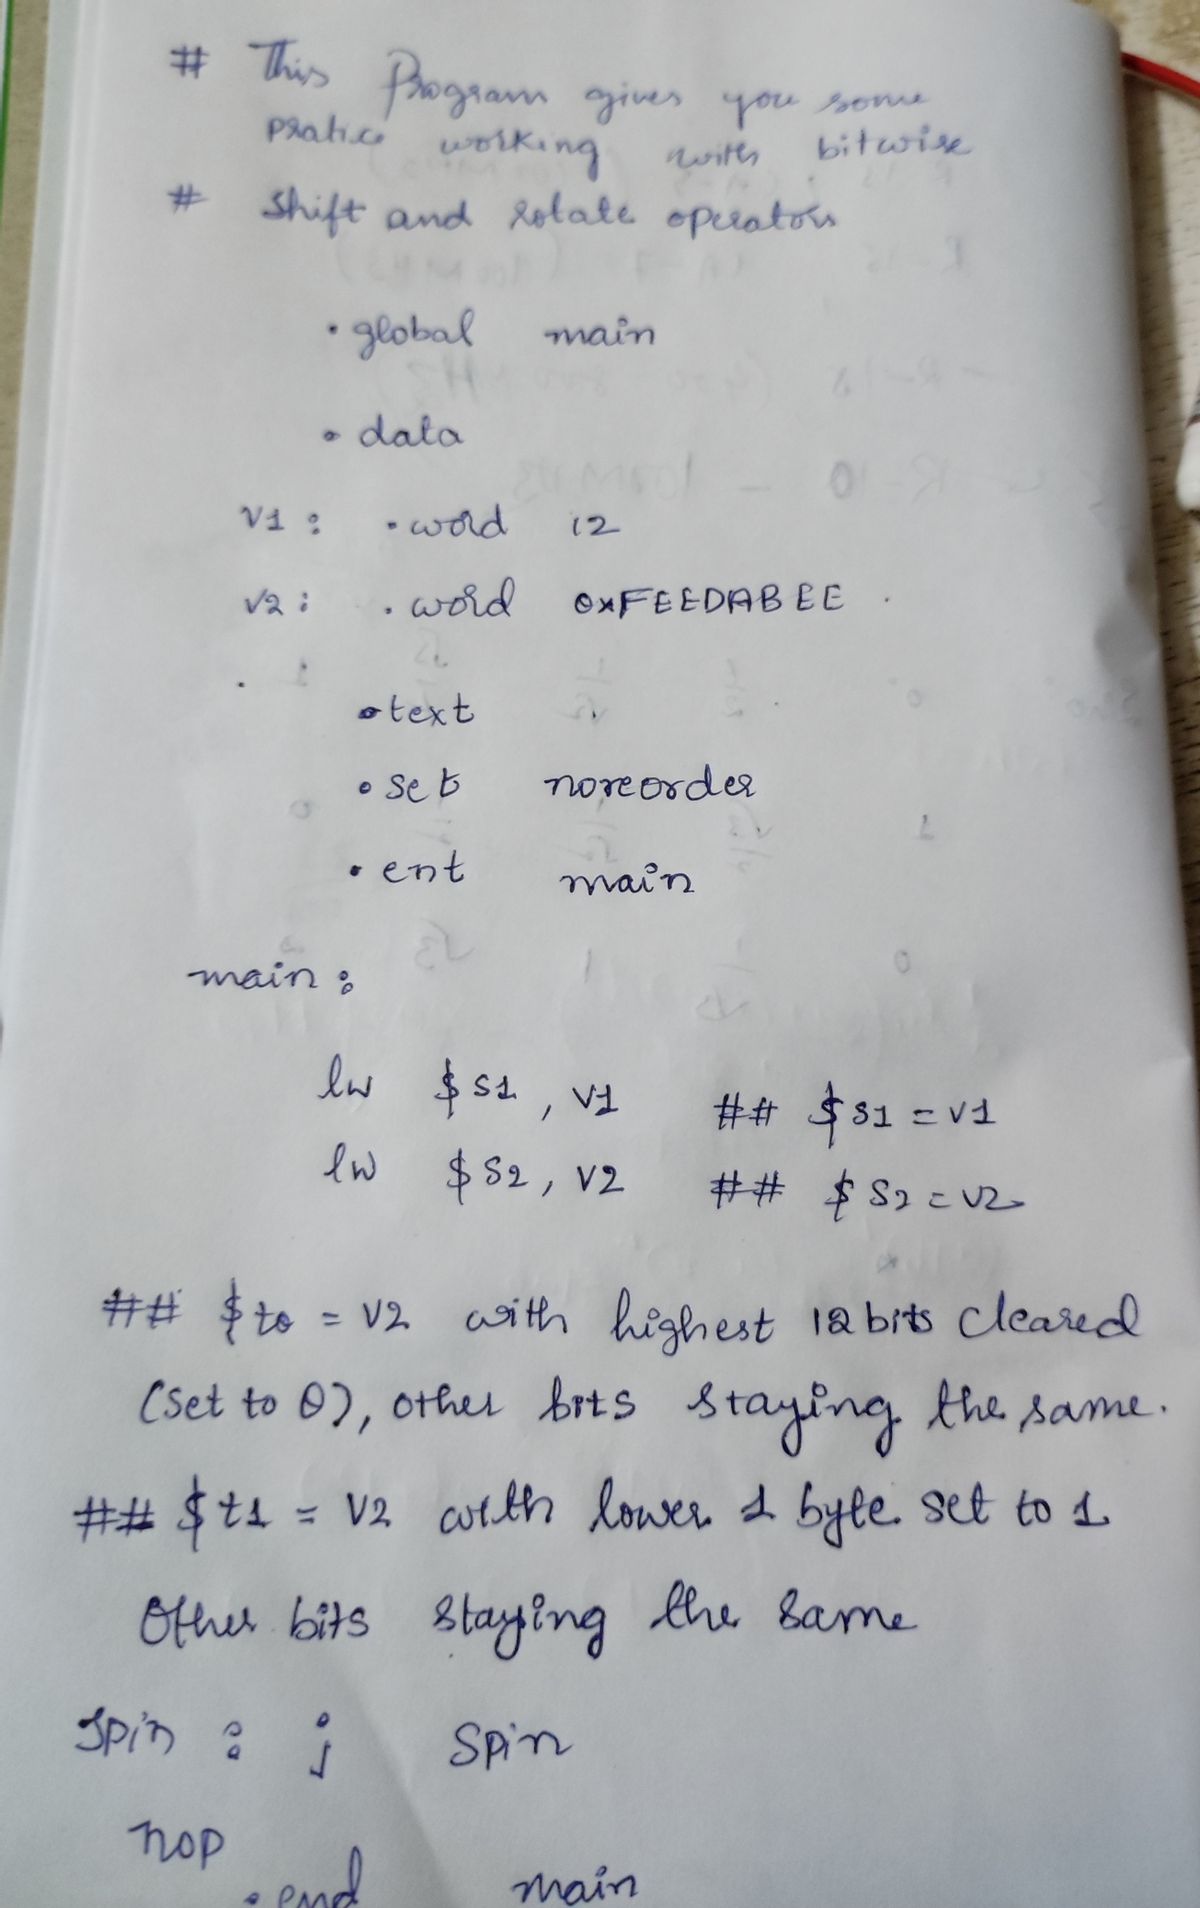 # This Program gives you some
pratice working with bitwise
# shift and rotate operators
.global main
.data
v1: .word 12
v2: .word 0xFEEDABEE
.text
.set noreorder
.ent main
main:
lw $s1, v1 ## $s1 = v1
lw $s2, v2 ## $s2 = v2
## $t0 = v2 with highest 12 bits cleared
(set to 0), other bits staying the same.
## $t1 = v2 with lower 1 byte set to 1
Other bits staying the same
spin: j spin
nop
.end main